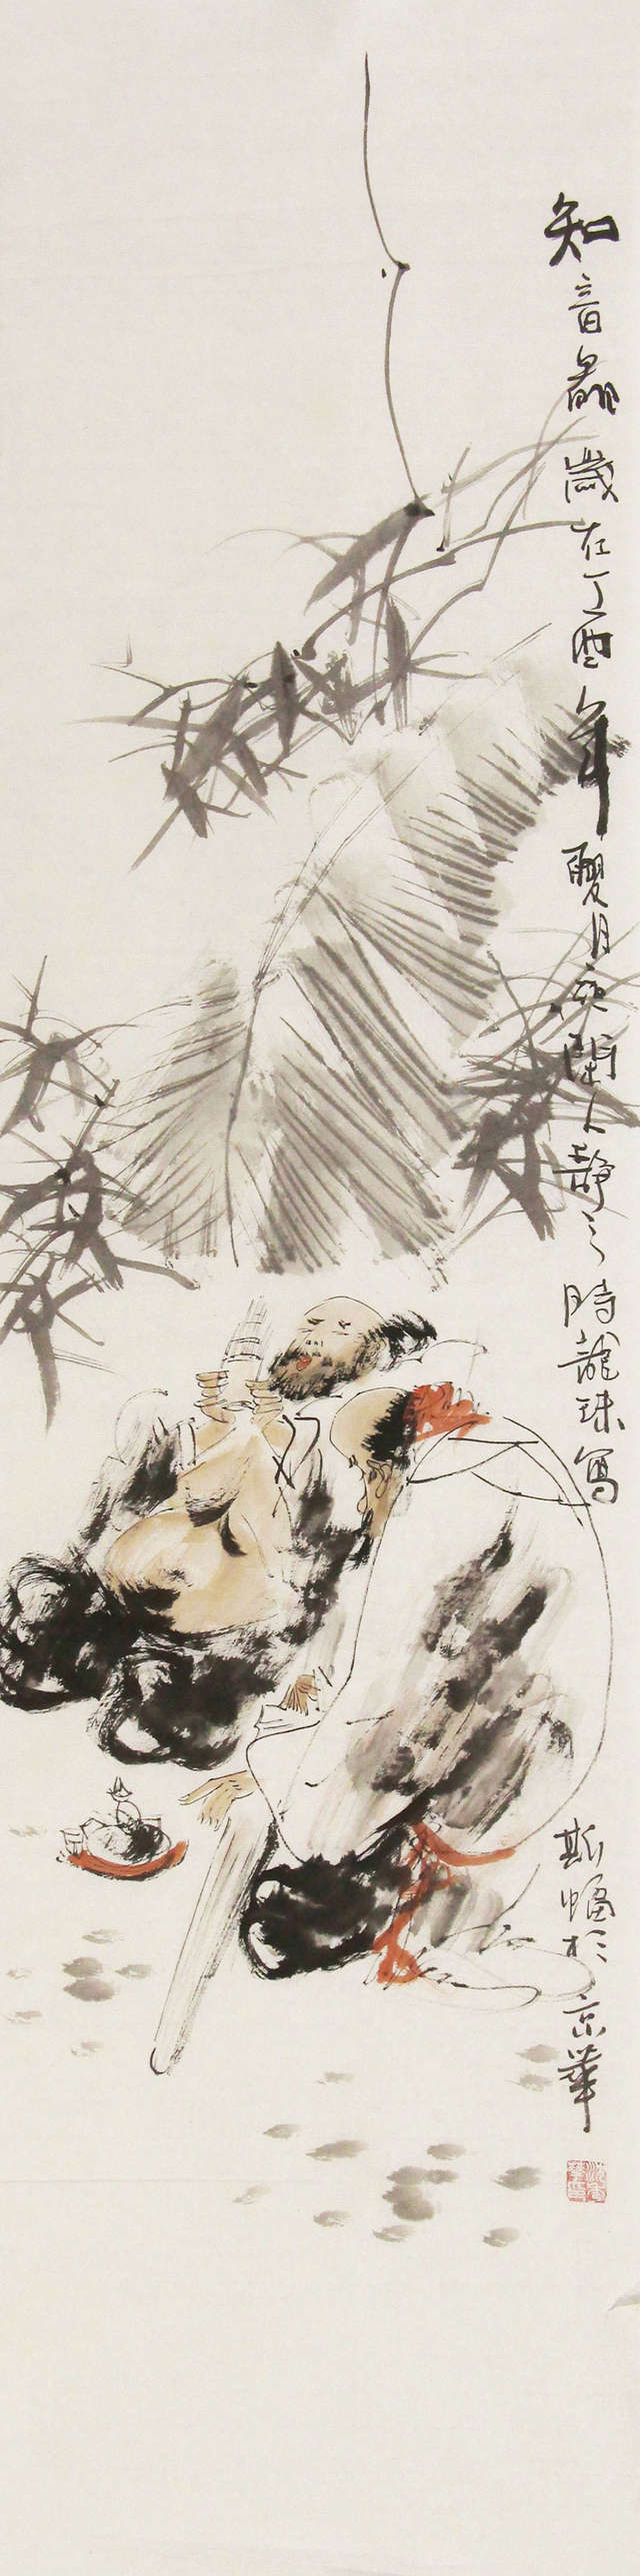 知音圖 歲在丁酉年夏月夜闌人靜之時龍珠寫
斯幅於京華